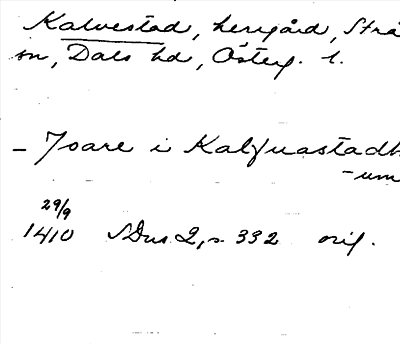 Kalvestad, herrgård, Strå
sn, Dals hd, Österg. l.
- Joare i Kalfuastadh
-um
29/9
1410 SDns 2, s. 332 orig.